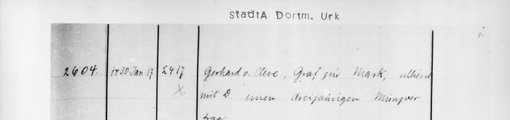 StadtA Dortm. Urk
2604. 1430 Jan 17 2417 Gerhard v. Cleve, Graf zur Mark,
X. mit D. einen dreijährigen Münzver
trag